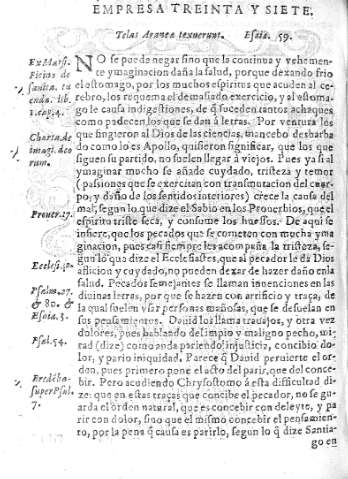 EMPRESA TREINTA Y SIETE.
Telas Araneæ texuerunt. Esaiæ. 59.
NO se puede negar sino que la continua y vehemen-
te ymaginacion daña la salud, porque dexando frio
el estomago, por los muchos espiritus que acuden al ce-
rebro, los requema el demasiado exercicio, y al estoma-
go le causa indigestiones, de q̃ suceden tantos achaques
como padecen los que se dan à letras. Por ventura los
que fingieron al Dios de las ciencias, mancebo desbarba
do como lo es Apollo, quisieron significar, que los que
siguen su partido, no suelen llegar à viejos. Pues ya si al
ymaginar mucho se añade cuydado, tristeza y temor
(passiones que se exercitan con transmutacion del cuer-
po, y daño de los sentidos interiores) crece la causa del
mal, segun lo que dize el Sabio en los Prouerbios, que el
espiritu triste seca, y consume los huessos. De aqui se
infiere, que los pecados que se cometen con mucha yma
ginacion, pues casi siempre les acompaña la tristeza, se-
gun lo q̃ua dize el Ecclesiastes, que al pecador le dà Dios
afliccion y cuydado, no pueden dexar de hazer daño en la
salud. Pecados semejantes se llaman inuenciones en las
diuinas letras, por que se hazen con artificio y traça, de
la qual suelen vsar personas mañosas, que se desuelan en
sus pensamientos. Dauid los llama trauajos, y otra vez
dolores, pues hablando del impio y maligno pecho, mi-
rad (dize) como anda pariendo injusticia, concibio do-
lor, y pario iniquidad. Parece q̃ Dauid peruierte el or-
den, pues primero pone el acto del parir, que del conce-
bir. Pero acudiendo Chrysostomo à esta dificultad di-
ze: que en estas traças que concibe el pecador, no se gu-
arda el orden natural, que es concebir con deleyte, y pa
rir con dolor, sino que el mismo concebir el pensamien-
to, por la pena q̃ causa es parirlo, segun lo q̃ dize Santia
go en
Ex Marsi.
Ficino de
sanita. tu
enda. lib.
1. cap. 4.
Chartar. de
imagi. deo
rum.
Prouer. 17.
Ecclesi.
Psalm. 27.
& 80. &
Esaia. 3.
Psal. 54.
7.